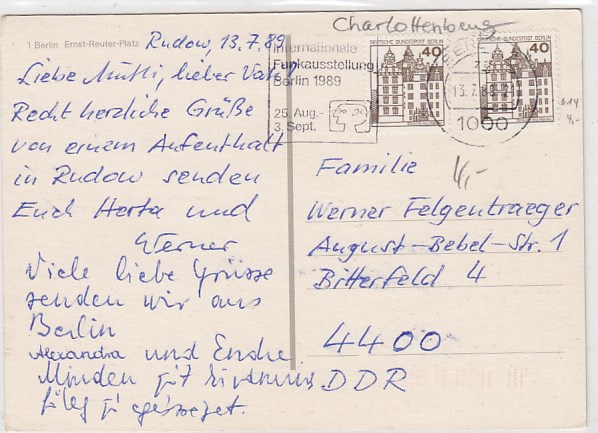 1 Berlin Ernst-Reuter-Platz
Rudow, 13.7.89
Liebe Mutti, lieber Vati,
Recht herzliche Grüße
von einem Aufenthalt
in Rudow senden
Euch Herta und
Werner
Viele liebe Grüsse
senden wir aus
Berlin
Alexandra und Endre
Charlottenburg
Internationale
Funkausstellung
Berlin 1989
25. Aug.-
3. Sept.
DEUTSCHE BUNDESPOST BERLIN
40
DEUTSCHE BUNDESPOST BERLIN
40
BERLIN
13.7.89
1000
614
4,-
4,-
Familie
Werner Felgentraeger
August-Bebel-Str. 1
Bitterfeld 4
4400
DDR